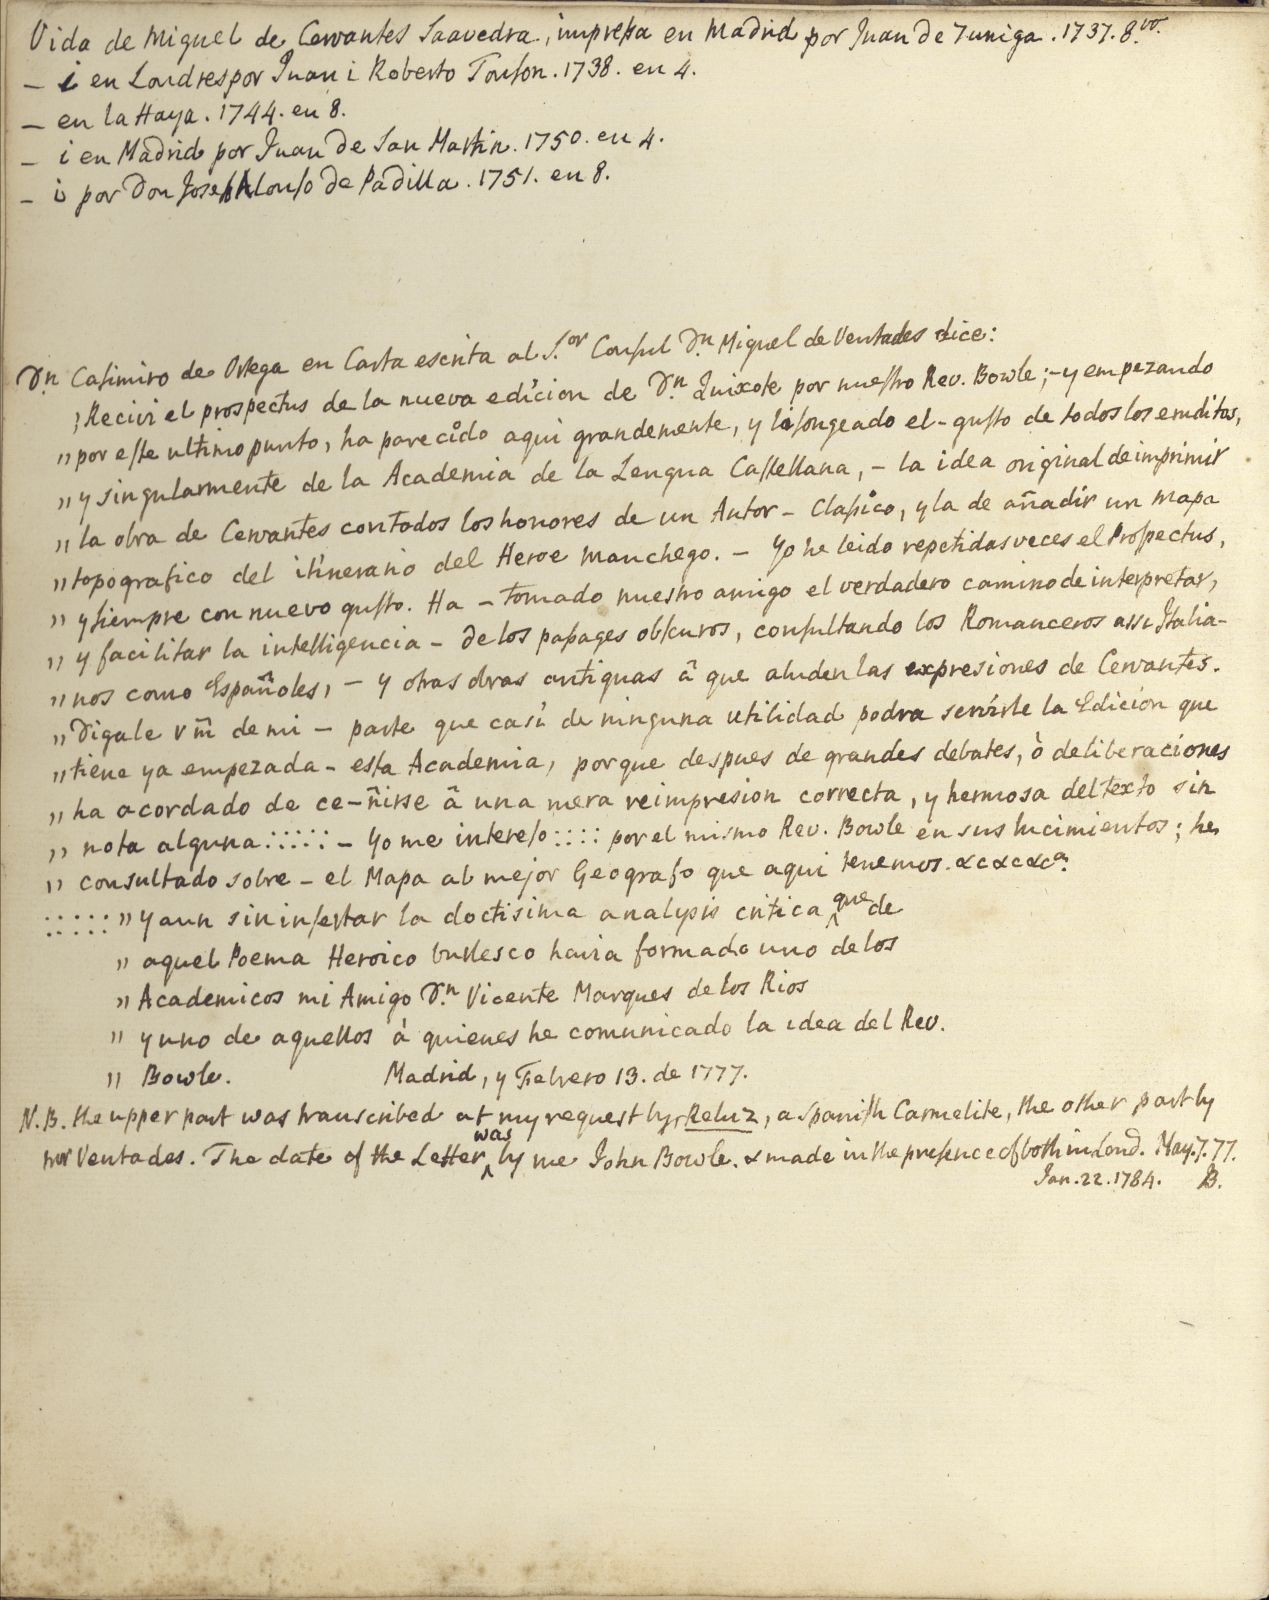 Vida de Miguel de Cervantes Saavedra, impressa en Madrid por Juan de Zuniga. 1737. 8.vo
– i en Londres por Juan i Roberto Tonson. 1738. en 4.
– en la Haya. 1744. en 8.
– i en Madrid por Juan de San Martin. 1750. en 4.
– i por Don Joseph Alonso de Padilla. 1751. en 8.
Dn Casimiro de Ortega en Carta escrita al S.or Consul Dn Miguel de Ventades dice:
"Recivi el prospectus de la nueva edicion de Dn. Quixote por nuestro Rev. Bowle; – y empezando
" por este ultimo punto, ha parecido aqui grandemente, y lisongeado el – gusto de todos los eruditos,
" y singularmente de la Academia de la Lengua Castellana, – la idea original de imprimir
" la obra de Cervantes con todos los honores de un Autor – Classico, y la de añadir un mapa
" topografico del itinerario del Heroe manchego. – Yo he leido repetidas veces el Prospectus,
" y siempre con nuevo gusto. Ha – tomado nuestro amigo el verdadero camino de interpretar,
" y facilitar la intelligencia – de los passages obscuros, consultando los Romanceros assi Italia-
" nos como Españoles, – y otras obras antiguas â que aluden las expresiones de Cervantes.
" Digale Vm̃ de mi – parte que casi de ninguna utilidad podra servirle la Edicion que
" tiene ya empezada – esta Academia, porque despues de grandes debates, ò deliberaciones
" ha acordado de ce-ñirse â una mera reimpresion correcta, y hermosa del texto sin
" nota alguna ::::: – Yo me intereso :::: por el mismo Rev. Bowle en sus lucimientos; he
" consultado sobre – el Mapa al mejor Geografo que aqui tenemos. &c &c &ca.
::::: " y aun sin insertar la doctisima analysis critica ^que de
" aquel Poema Heroico burlesco havia formado uno de los
" Academicos mi Amigo Dn. Vicente Marques de los Rios
" y uno de aquellos à quienes he comunicado la idea del Rev.
" Bowle. Madrid, y Febrero 13. de 1777.
N.B. the upper part was transcribed at my request by Reluz, a Spanish Carmelite, the other part by
Ventades. The date of the Letter ^was by me John Bowle. & made in the presence of both in Lond. May. 7. 77.
Jan. 22. 1784. B.